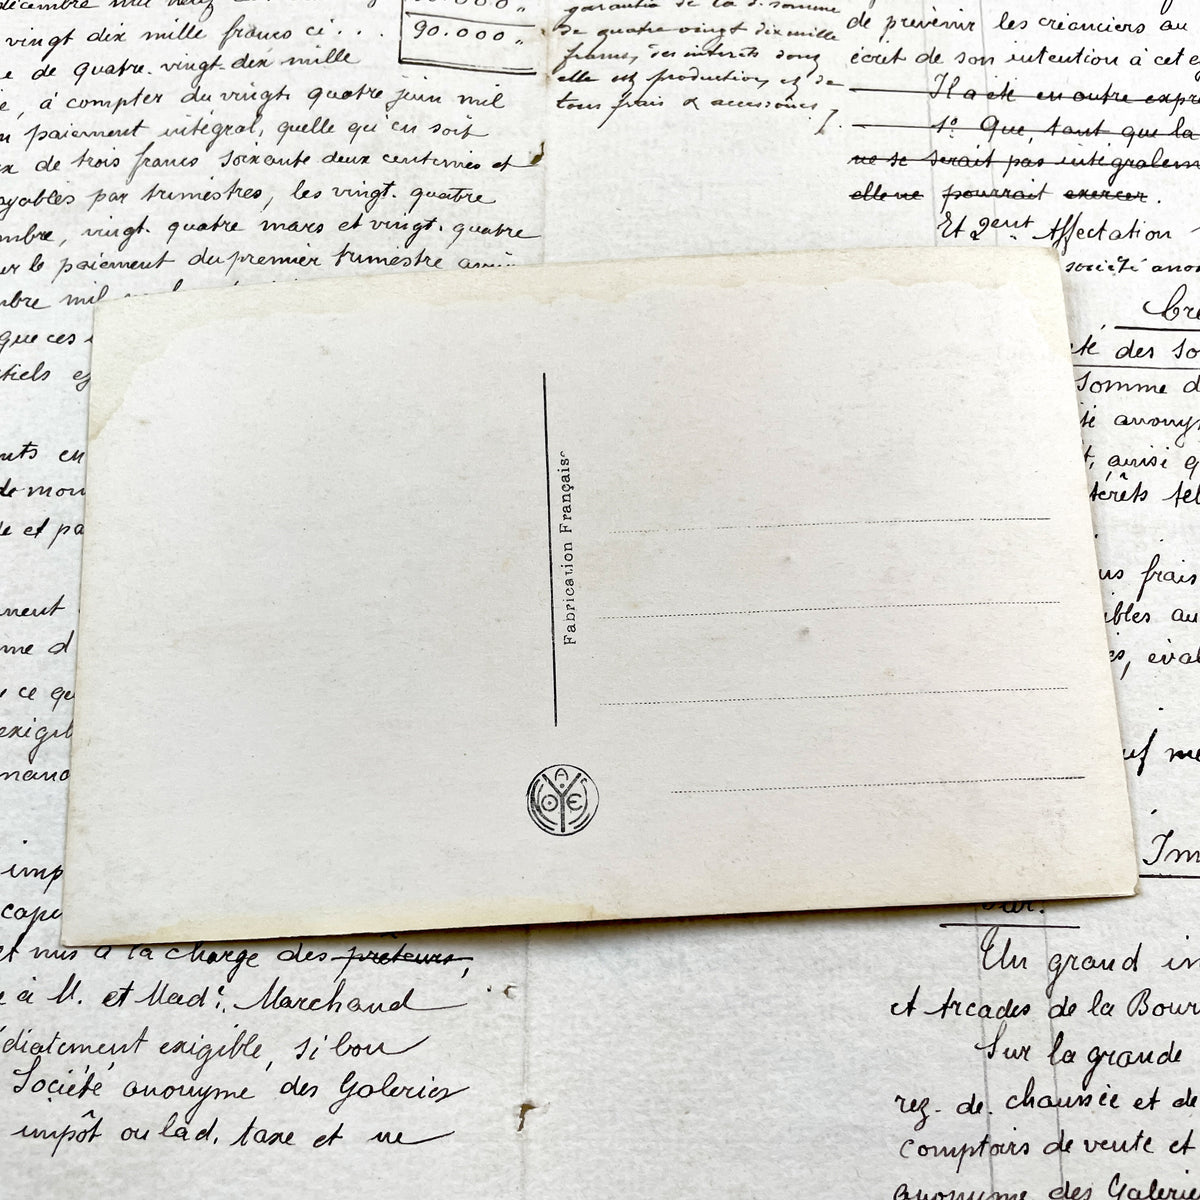 décembre mil neuf cent
vingt dix mille francs ci . . .
90.000 "
e de quatre. vingt. dix mille
ie, à compter du vingt. quatre juin mil
n paiement intégral, quelle qu'en soit
x de trois francs soixante deux centimes et
ayables par trimestres, les vingt. quatre
mbre, vingt. quatre mars et vingt. quatre
ur le paiement du premier trimestre
mbre mil
que ces
tiels
nts en
de mou
e et pa
ment
me d
ce qu
exigib
mand
imp
capi
et mis à la charge des prêteurs,
e à M. et Mad.e Marchand
édiatement exigible, si bon
Société anonyme des Galeries
impôt ou lad. taxe et ne
garantie de la d. somme
de quatre vingt dix mille
francs, des intérêts dont
elle est productive, et de
tous frais & accessoires,
de prévenir les créanciers au
écrit de son intention à cet e
Il a été en outre expre
1º Que, tant que la
ne se serait pas intégralem
elle ne pourrait exercer.
Et 2ent Affectation
société anon
Cré
té des So
somme d
té anonym
t, ainsi q
térêts tel
us frais
ibles au
es, éval
uf me
Im
Sur.
Un grand im
et Arcades de la Bour
Sur la grande
rez. de. chaussée et de
comptoirs de vente et
anonyme des Galerie
Fabrication Française
A
O Y E